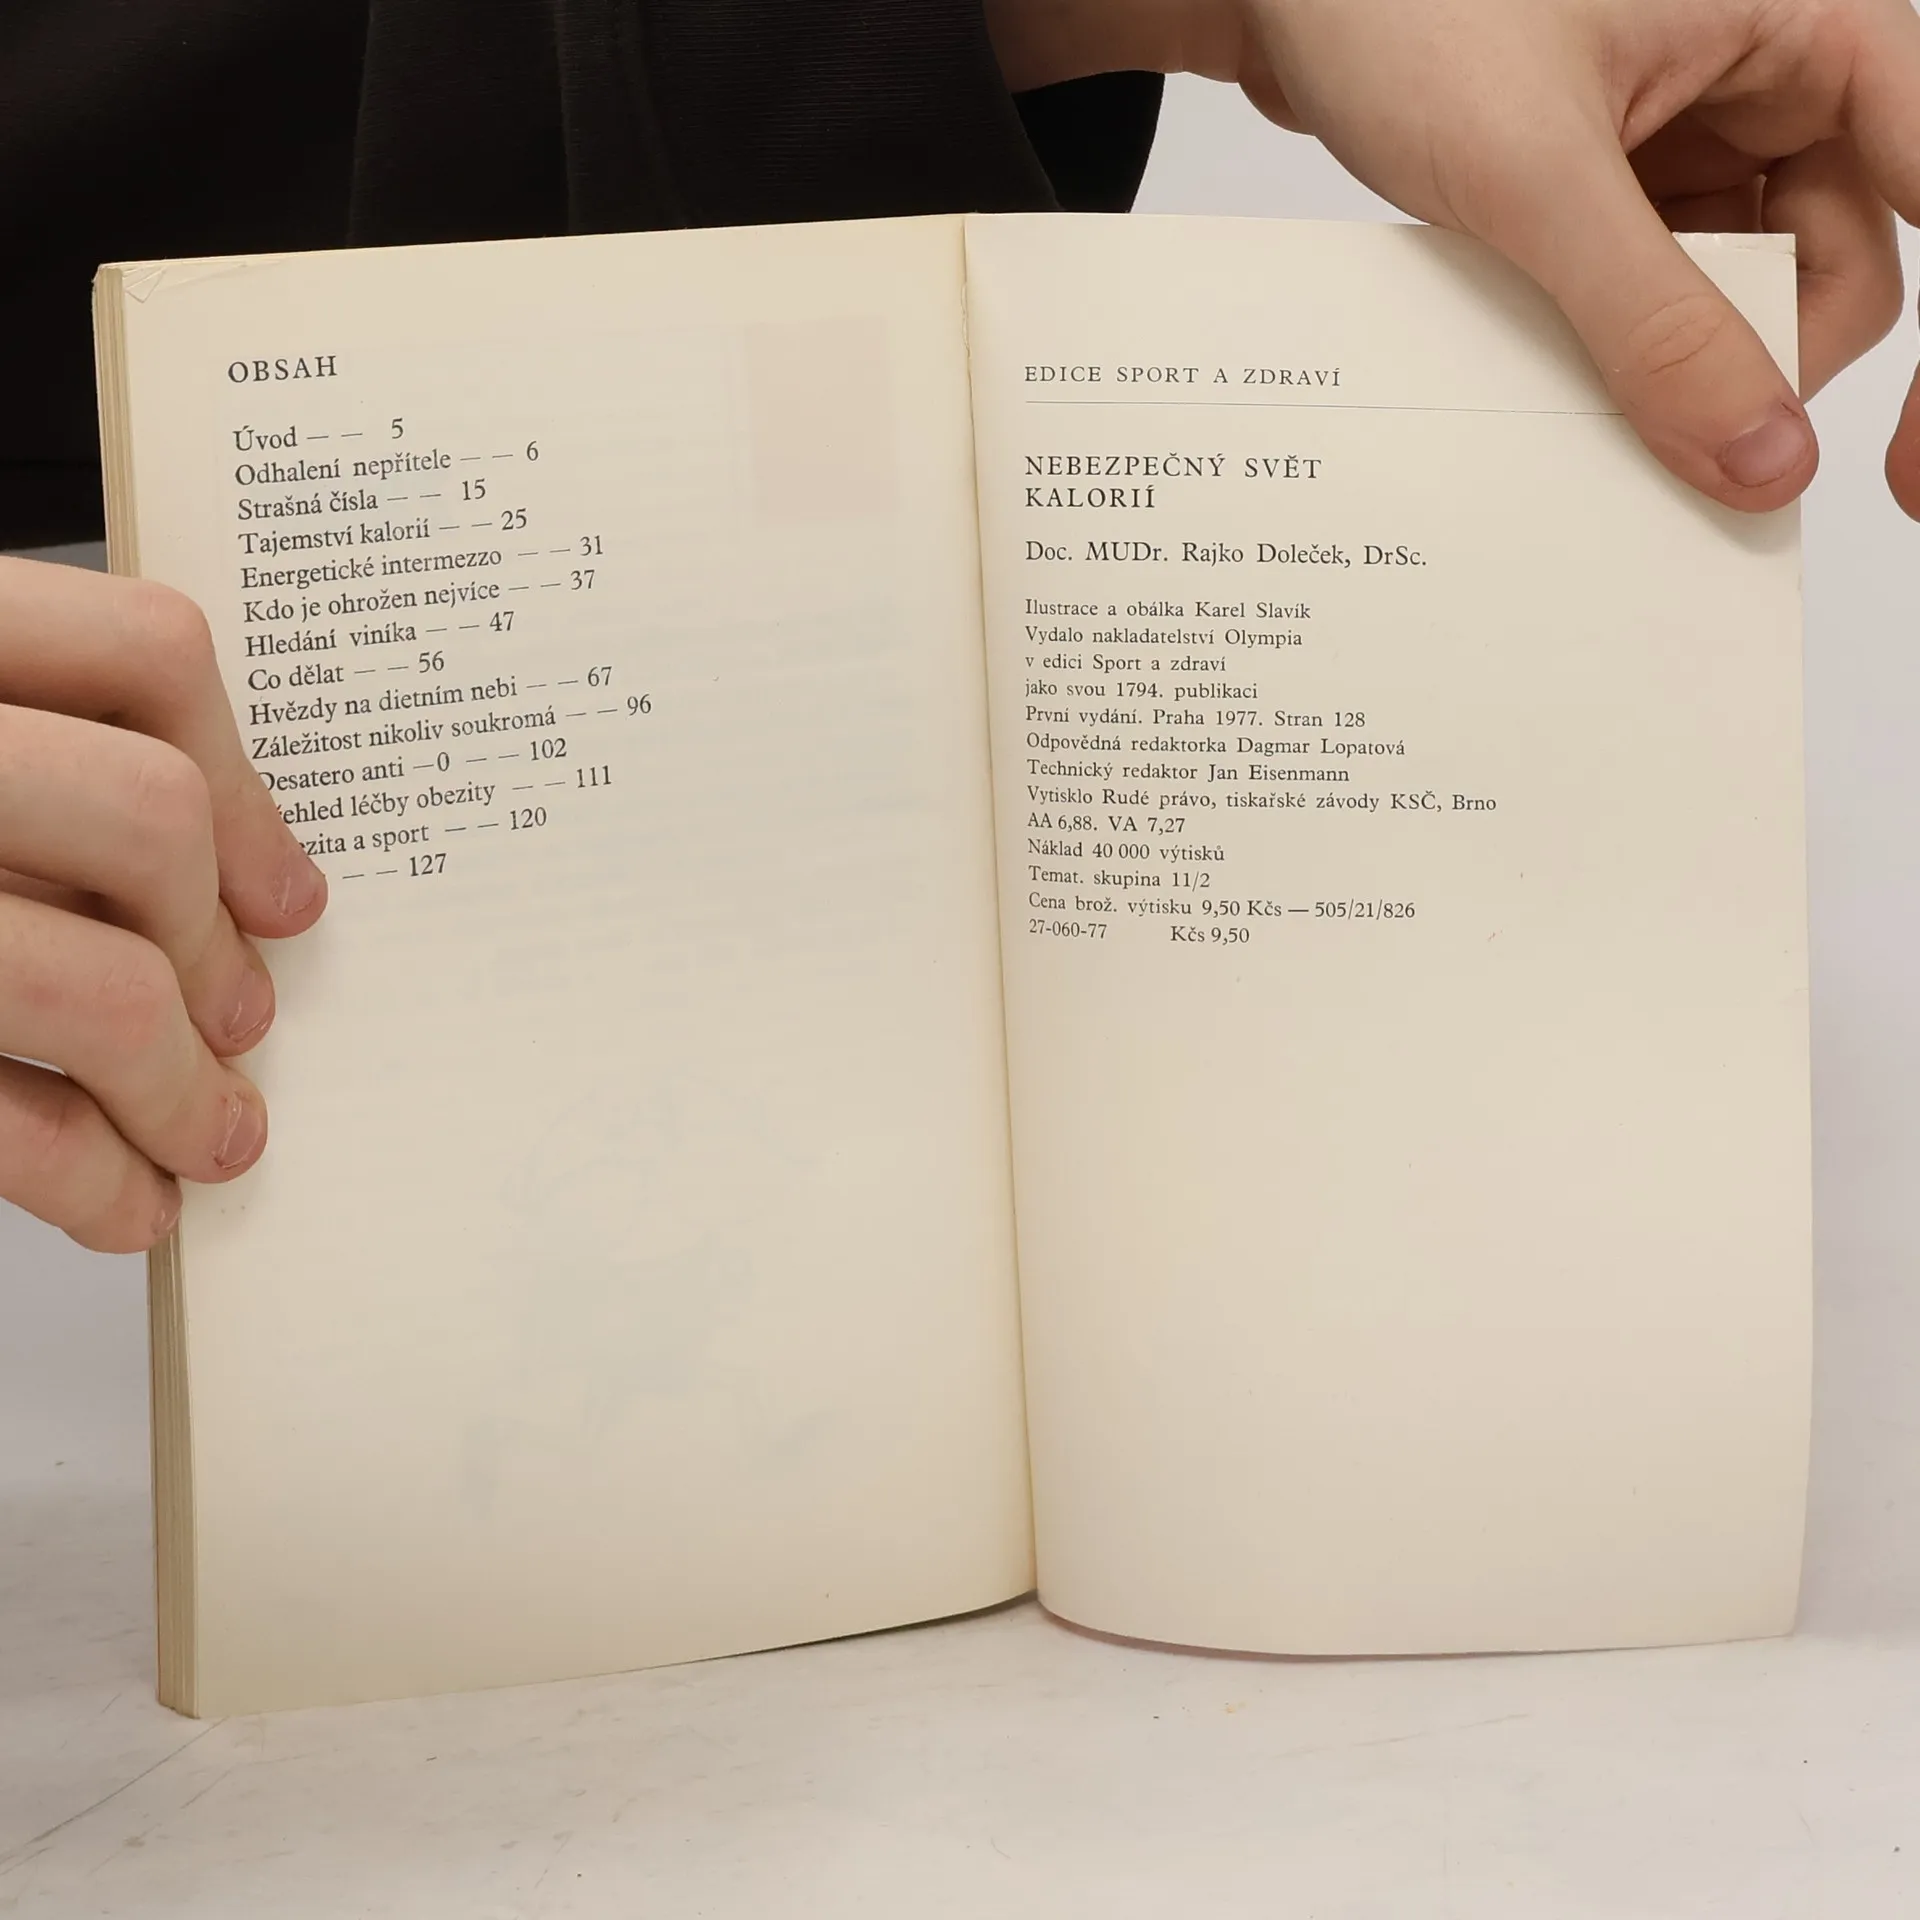 OBSAH
Úvod — — 5
Odhalení nepřítele — — 6
Strašná čísla — — 15
Tajemství kalorií — — 25
Energetické intermezzo — — 31
Kdo je ohrožen nejvíce — — 37
Hledání viníka — — 47
Co dělat — — 56
Hvězdy na dietním nebi — — 67
Záležitost nikoliv soukromá — — 96
Desatero anti —0 — — 102
léčby obezity — — 111
a sport — — 120
— — 127
EDICE SPORT A ZDRAVÍ
NEBEZPEČNÝ SVĚT
KALORIÍ
Doc. MUDr. Rajko Doleček, DrSc.
Ilustrace a obálka Karel Slavík
Vydalo nakladatelství Olympia
v edici Sport a zdraví
jako svou 1794. publikaci
První vydání. Praha 1977. Stran 128
Odpovědná redaktorka Dagmar Lopatová
Technický redaktor Jan Eisenmann
Vytisklo Rudé právo, tiskařské závody KSČ, Brno
AA 6,88. VA 7,27
Náklad 40 000 výtisků
Temat. skupina 11/2
Cena brož. výtisku 9,50 Kčs — 505/21/826
27-060-77 Kčs 9,50